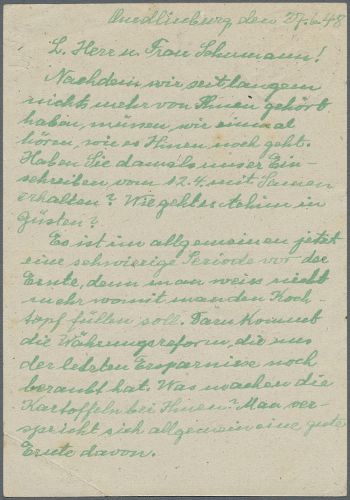 Quedlinburg den 27.6.48
L. Herr u. Frau Schumann!
Nachdem wir seit langem
nichts mehr von Ihnen gehört
haben, müssen wir einmal
hören, wie es Ihnen noch geht.
Haben Sie damals unser Ein-
schreiben vom 12.4. mit Samen
erhalten? Wie geht es Achim in
Güsten?
Es ist im allgemeinen jetzt
eine schwierige Periode vor der
Ernte, denn man weiss nicht
mehr womit man den Koch-
topf füllen soll. Dazu kommt
die Währungsreform, die uns
der letzten Ersparnisse noch
beraubt hat. Was machen die
Kartoffeln bei Ihnen? Man ver-
spricht sich allgemein eine gute
Ernte davon.